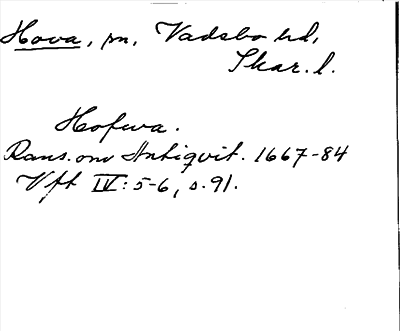 Hova, sn, Vadsbo hd,
Skar. l.
Hofwa.
Rans. om Antiqvit. 1667-84
Vft IV: 5-6, s. 91.